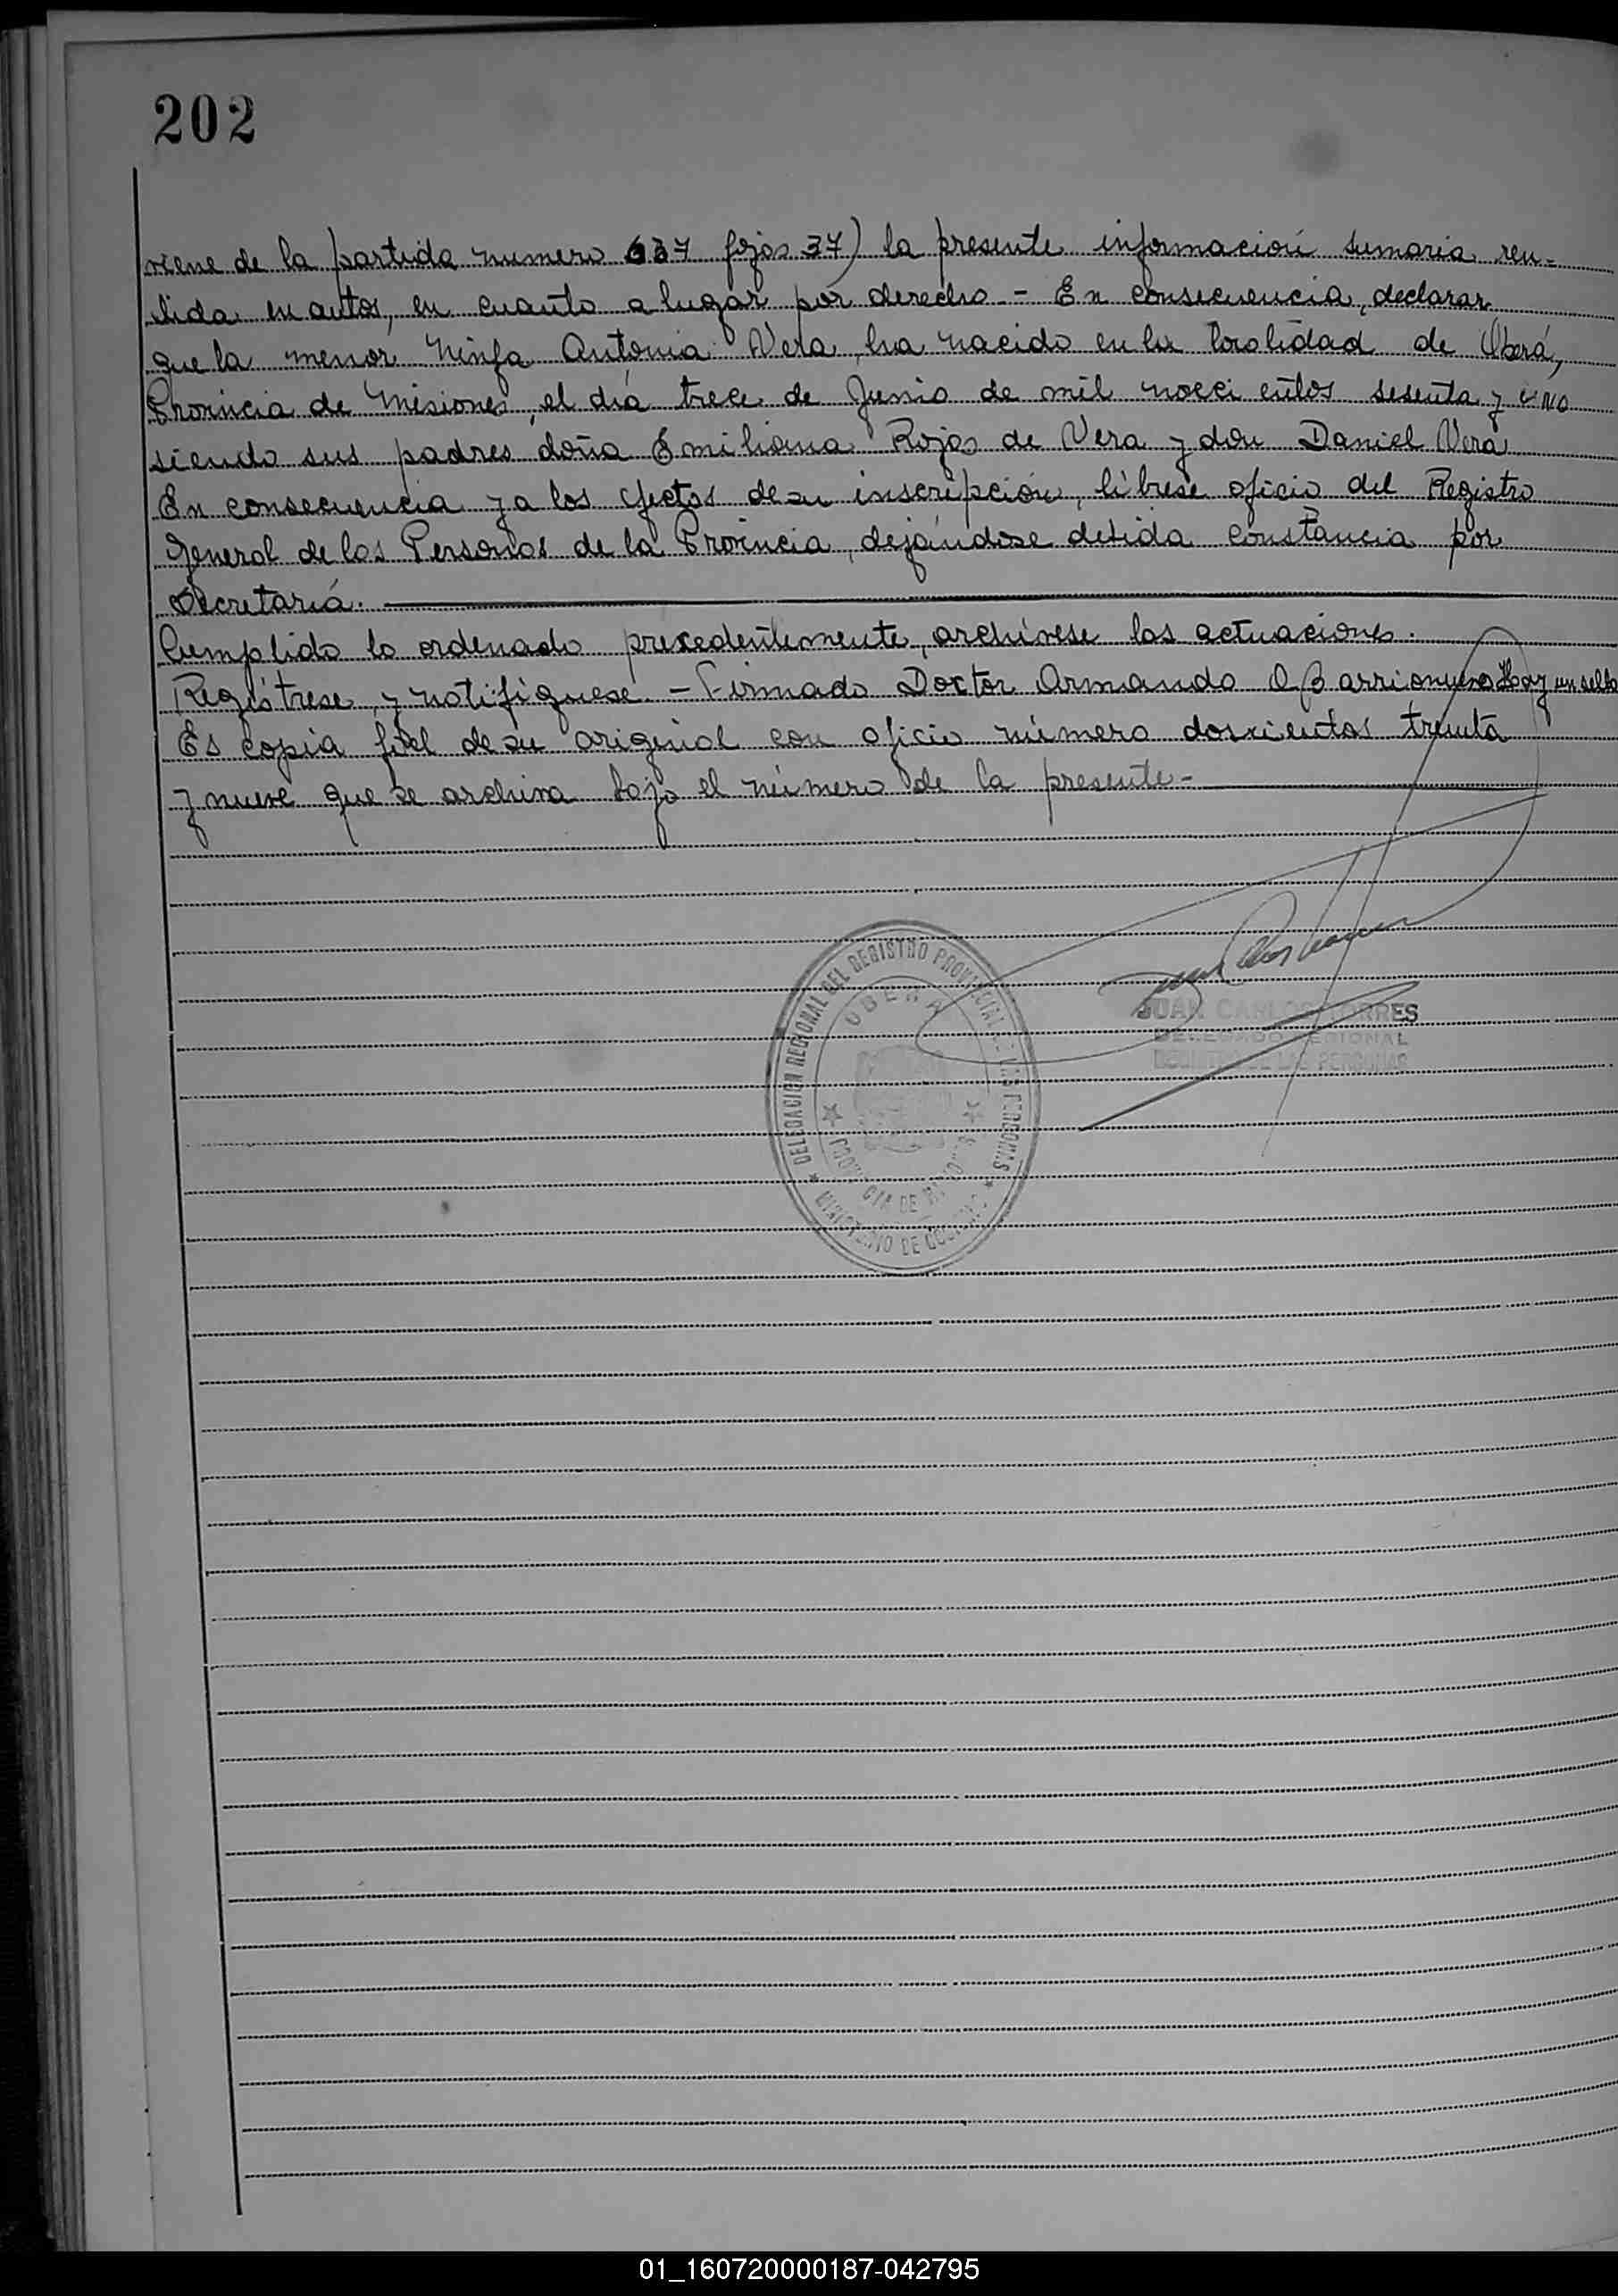 202
viene de la partida numero 637 fojos 37) la presente información sumaria ren-
dida en autos, en cuanto a lugar por derecho - En consecuencia, declarar
que la menor Ninfa Antonia Vera, ha nacido en la localidad de Oberá,
Provincia de Misiones, el día trece de Junio de mil novecientos sesenta y uno
siendo sus padres doña Emiliana Rojas de Vera y don Daniel Vera
En consecuencia y a los efectos de su inscripción, líbrese oficio del Registro
General de las Personas de la Provincia, dejándose debida constancia por
Secretaría.
Cumplido lo ordenado precedentemente, archívese las actuaciones.
Regístrese, y notifíquese. - Firmado Doctor Armando O Barrionuevo Hay un sello
Es copia fiel de su original con oficio número doscientos treinta
y nueve que se archiva bajo el número de la presente-
DELEGACION REGIONAL DEL REGISTRO PROVINCIAL DE LAS PERSONAS
OBERA
PROVINCIA DE MISIONES
MINISTERIO DE GOBIERNO
JUAN CARLOS TORRES
DELEGADO REGIONAL
REGISTRO DE LAS PERSONAS
01_160720000187-042795